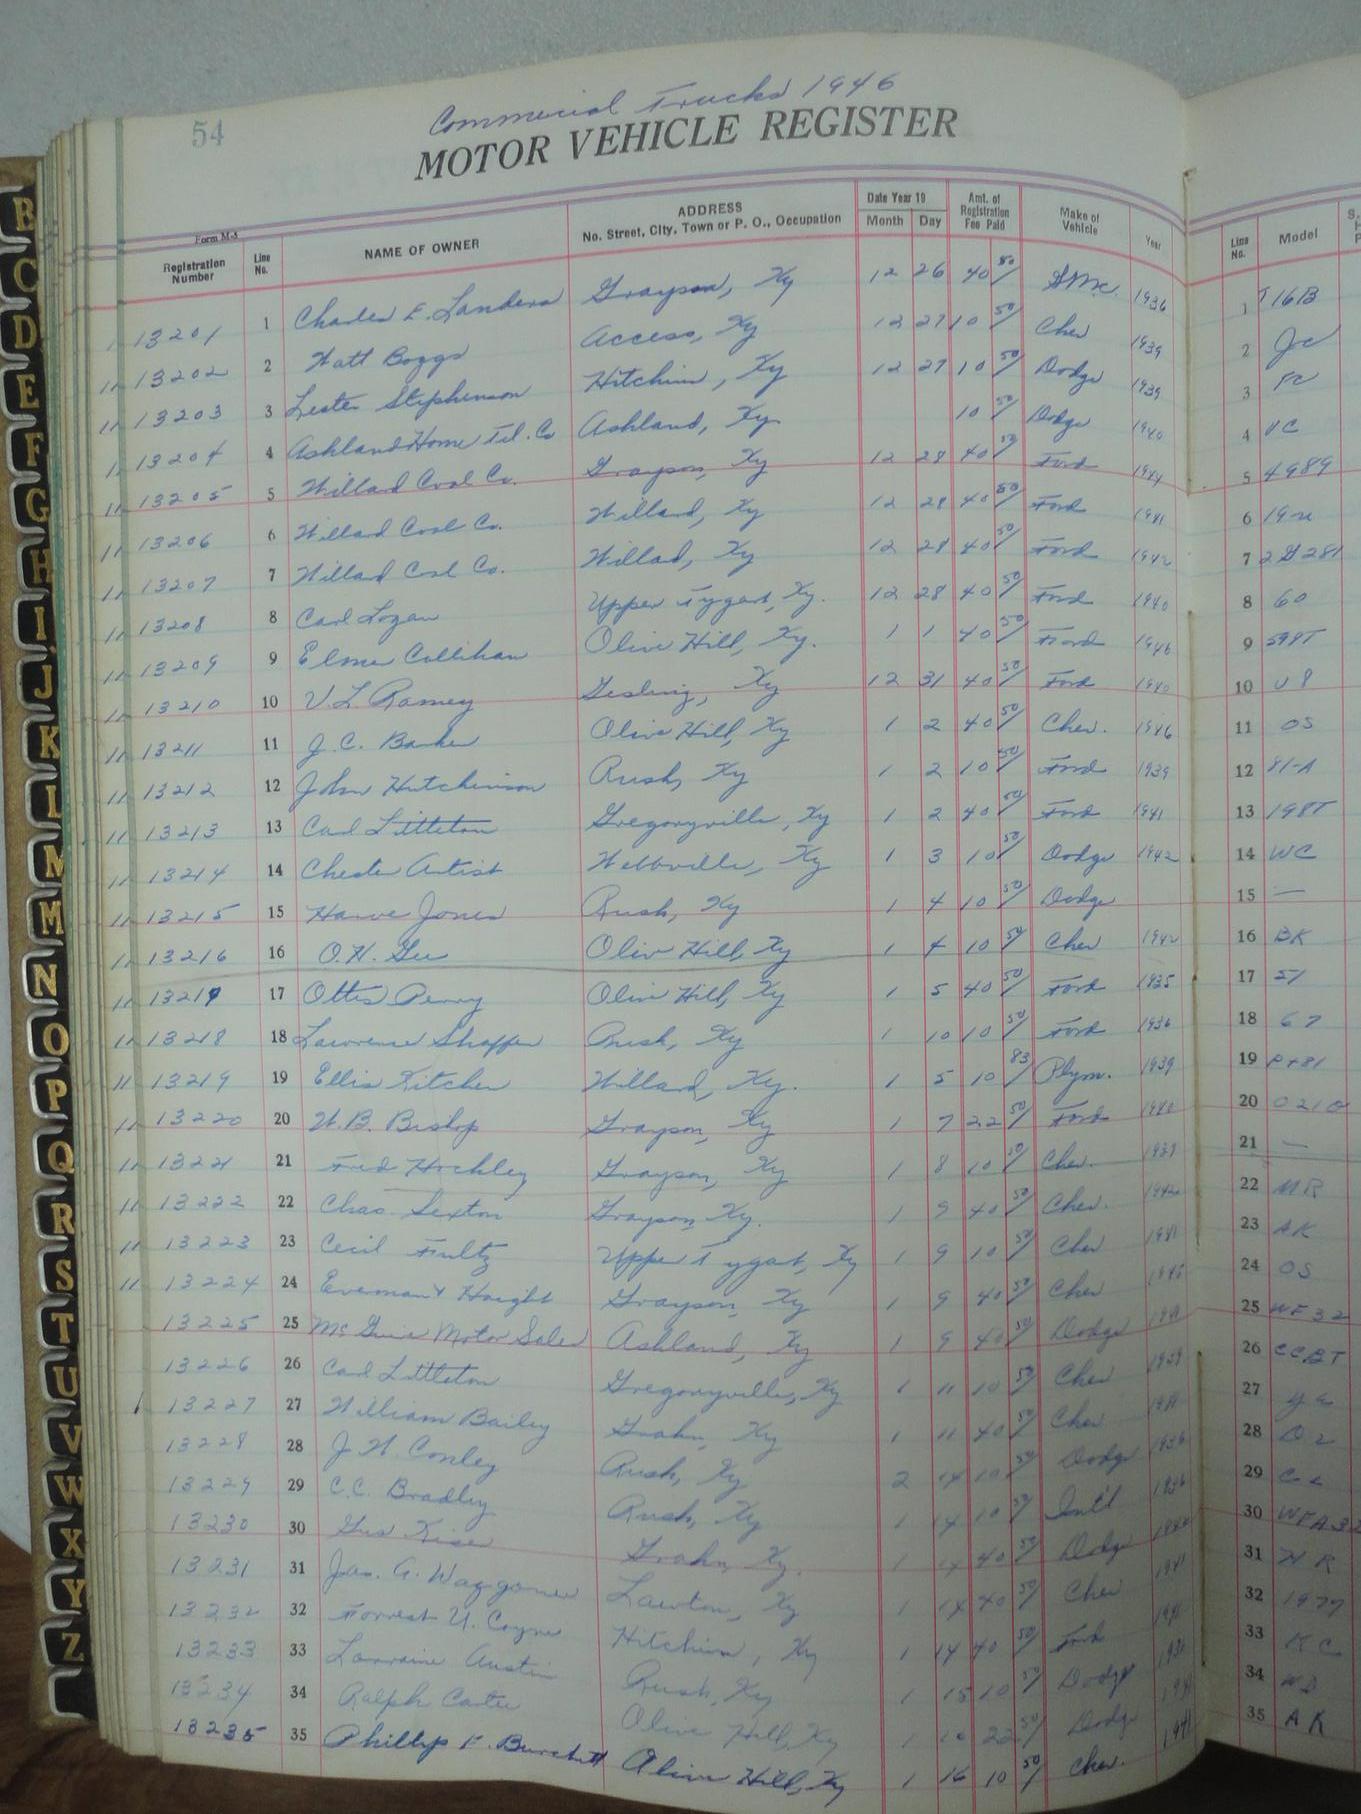 Commercial Trucks 1946
54
MOTOR VEHICLE REGISTER
Form M-5
Registration Number Line No. NAME OF OWNER ADDRESS No. Street, City, Town or P. O., Occupation Date Year 19 Month Day Amt. of Registration Fee Paid Make of Vehicle Year Line No. Model
13201 1 Charles E. Landers Grayson, Ky 12 26 40 50 GMC. 1936 1 T16B
" 13202 2 Watt Boggs Access, Ky 12 27 10 50 Chev 1939 2 JC
" 13203 3 Lester Stephenson Hitchins, Ky 12 27 10 50 Dodge 1939 3
" 13204 4 Ashland Home Tel. Co Ashland, Ky 10 50 Dodge 1940 4 VC
" 13205 5 Willard Coal Co. Grayson, Ky 12 28 40 50 Ford 1944 5 4989
" 13206 6 Willard Coal Co. Willard, Ky 12 28 40 50 Ford 1941 6
" 13207 7 Willard Coal Co. Willad, Ky 12 28 40 50 Ford 1942 7 2G281
" 13208 8 Carl Logan Upper Tygart, Ky. 12 28 40 50 Ford 1940 8 60
" 13209 9 Elmer Callihan Olive Hill, Ky. 1 1 40 50 Ford 1946 9 599T
" 13210 10 V.L. Ramey Gesling, Ky 12 31 40 50 Ford 1940 10 V8
" 13211 11 J.C. Barker Olive Hill, Ky 1 2 40 50 Chev. 1946 11 OS
" 13212 12 John Hutchinson Rush, Ky 1 2 10 50 Ford 1939 12 81-A
" 13213 13 Carl Littleton Gregoryville, Ky 1 2 40 50 Ford 1941 13 198T
" 13214 14 Chester Artist Webbville, Ky 1 3 10 50 Dodge 1942 14 WC
" 13215 15 Harve Jones Rush, Ky 1 4 10 50 Dodge 15 —
" 13216 16 O.H. Gee Olive Hill, Ky 1 4 10 50 Chev 1942 16 BK
" 13217 17 Ottis Perry Olive Hill, Ky 1 5 40 50 Ford 1935 17 51
" 13218 18 Lawrence Shaffer Rush, Ky 1 10 10 50 Ford 1936 18 67
" 13219 19 Ellis Kitchen Willard, Ky. 1 5 10 83 Plym. 1939 19 PT81
" 13220 20 W.B. Bishop Grayson, Ky 1 7 22 50 Ford 1940 20
" 13221 21 Fred Hockley Grayson, Ky 1 8 10 50 Chev. 1937 21 —
" 13222 22 Chas. Sexton Grayson Ky. 1 9 40 50 Chev. 1942 22 MR
" 13223 23 Cecil Fultz Upper Tygart, Ky 1 9 10 50 Chev 1941 23 AK
" 13224 24 Everman & Haight Grayson, Ky 1 9 40 50 Chev 24 OS
13225 25 McGuire Motor Sales Ashland, Ky 1 9 40 50 Dodge 25 WF32
13226 26 Carl Littleton Gregoryville, Ky 1 11 10 50 Chev 1939 26
13227 27 William Bailey Grahn, Ky 1 11 40 50 Chev 27
13228 28 J W. Conley Rush, Ky 2 14 10 50 Dodge 1936 28
13229 29 C.C. Bradley Rush, Ky 1 14 10 50 Int'l 1936 29
13230 30 Gus Kiser Grahn, Ky. 1 14 40 50 Dodge 30
13231 31 Jas. A. Waggoner Lawton, Ky 1 14 40 50 Chev 1941 31
13232 32 Forrest U. Coyne Hitchins, Ky 1 14 40 50 Ford 32
13233 33 Lorraine Austin Rush, Ky 1 15 10 50 Dodge 33 KC
13234 34 Ralph Carter Olive Hill, Ky 1 16 22 50 Dodge 34
13235 35 Phillip F. Burchett Olive Hill, Ky 1 16 10 50 Chev. 1941 35 AK
B
C
D
E
F
G
H
I
J
K
L
M
M
N
O
P
Q
R
S
T
U
V
W
X
Y
Z